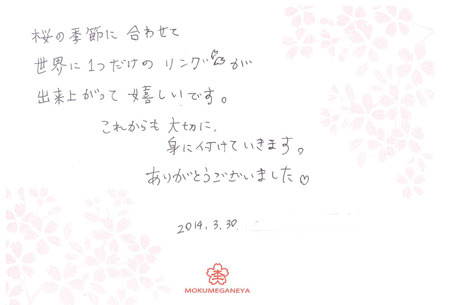 桜の季節に 合わせて
世界に1つだけの リングが
出来上がって 嬉しいです。
これからも 大切に、
身に付けていきます。
ありがとうございました♡
2014.3.30.
MOKUMEGANEYA